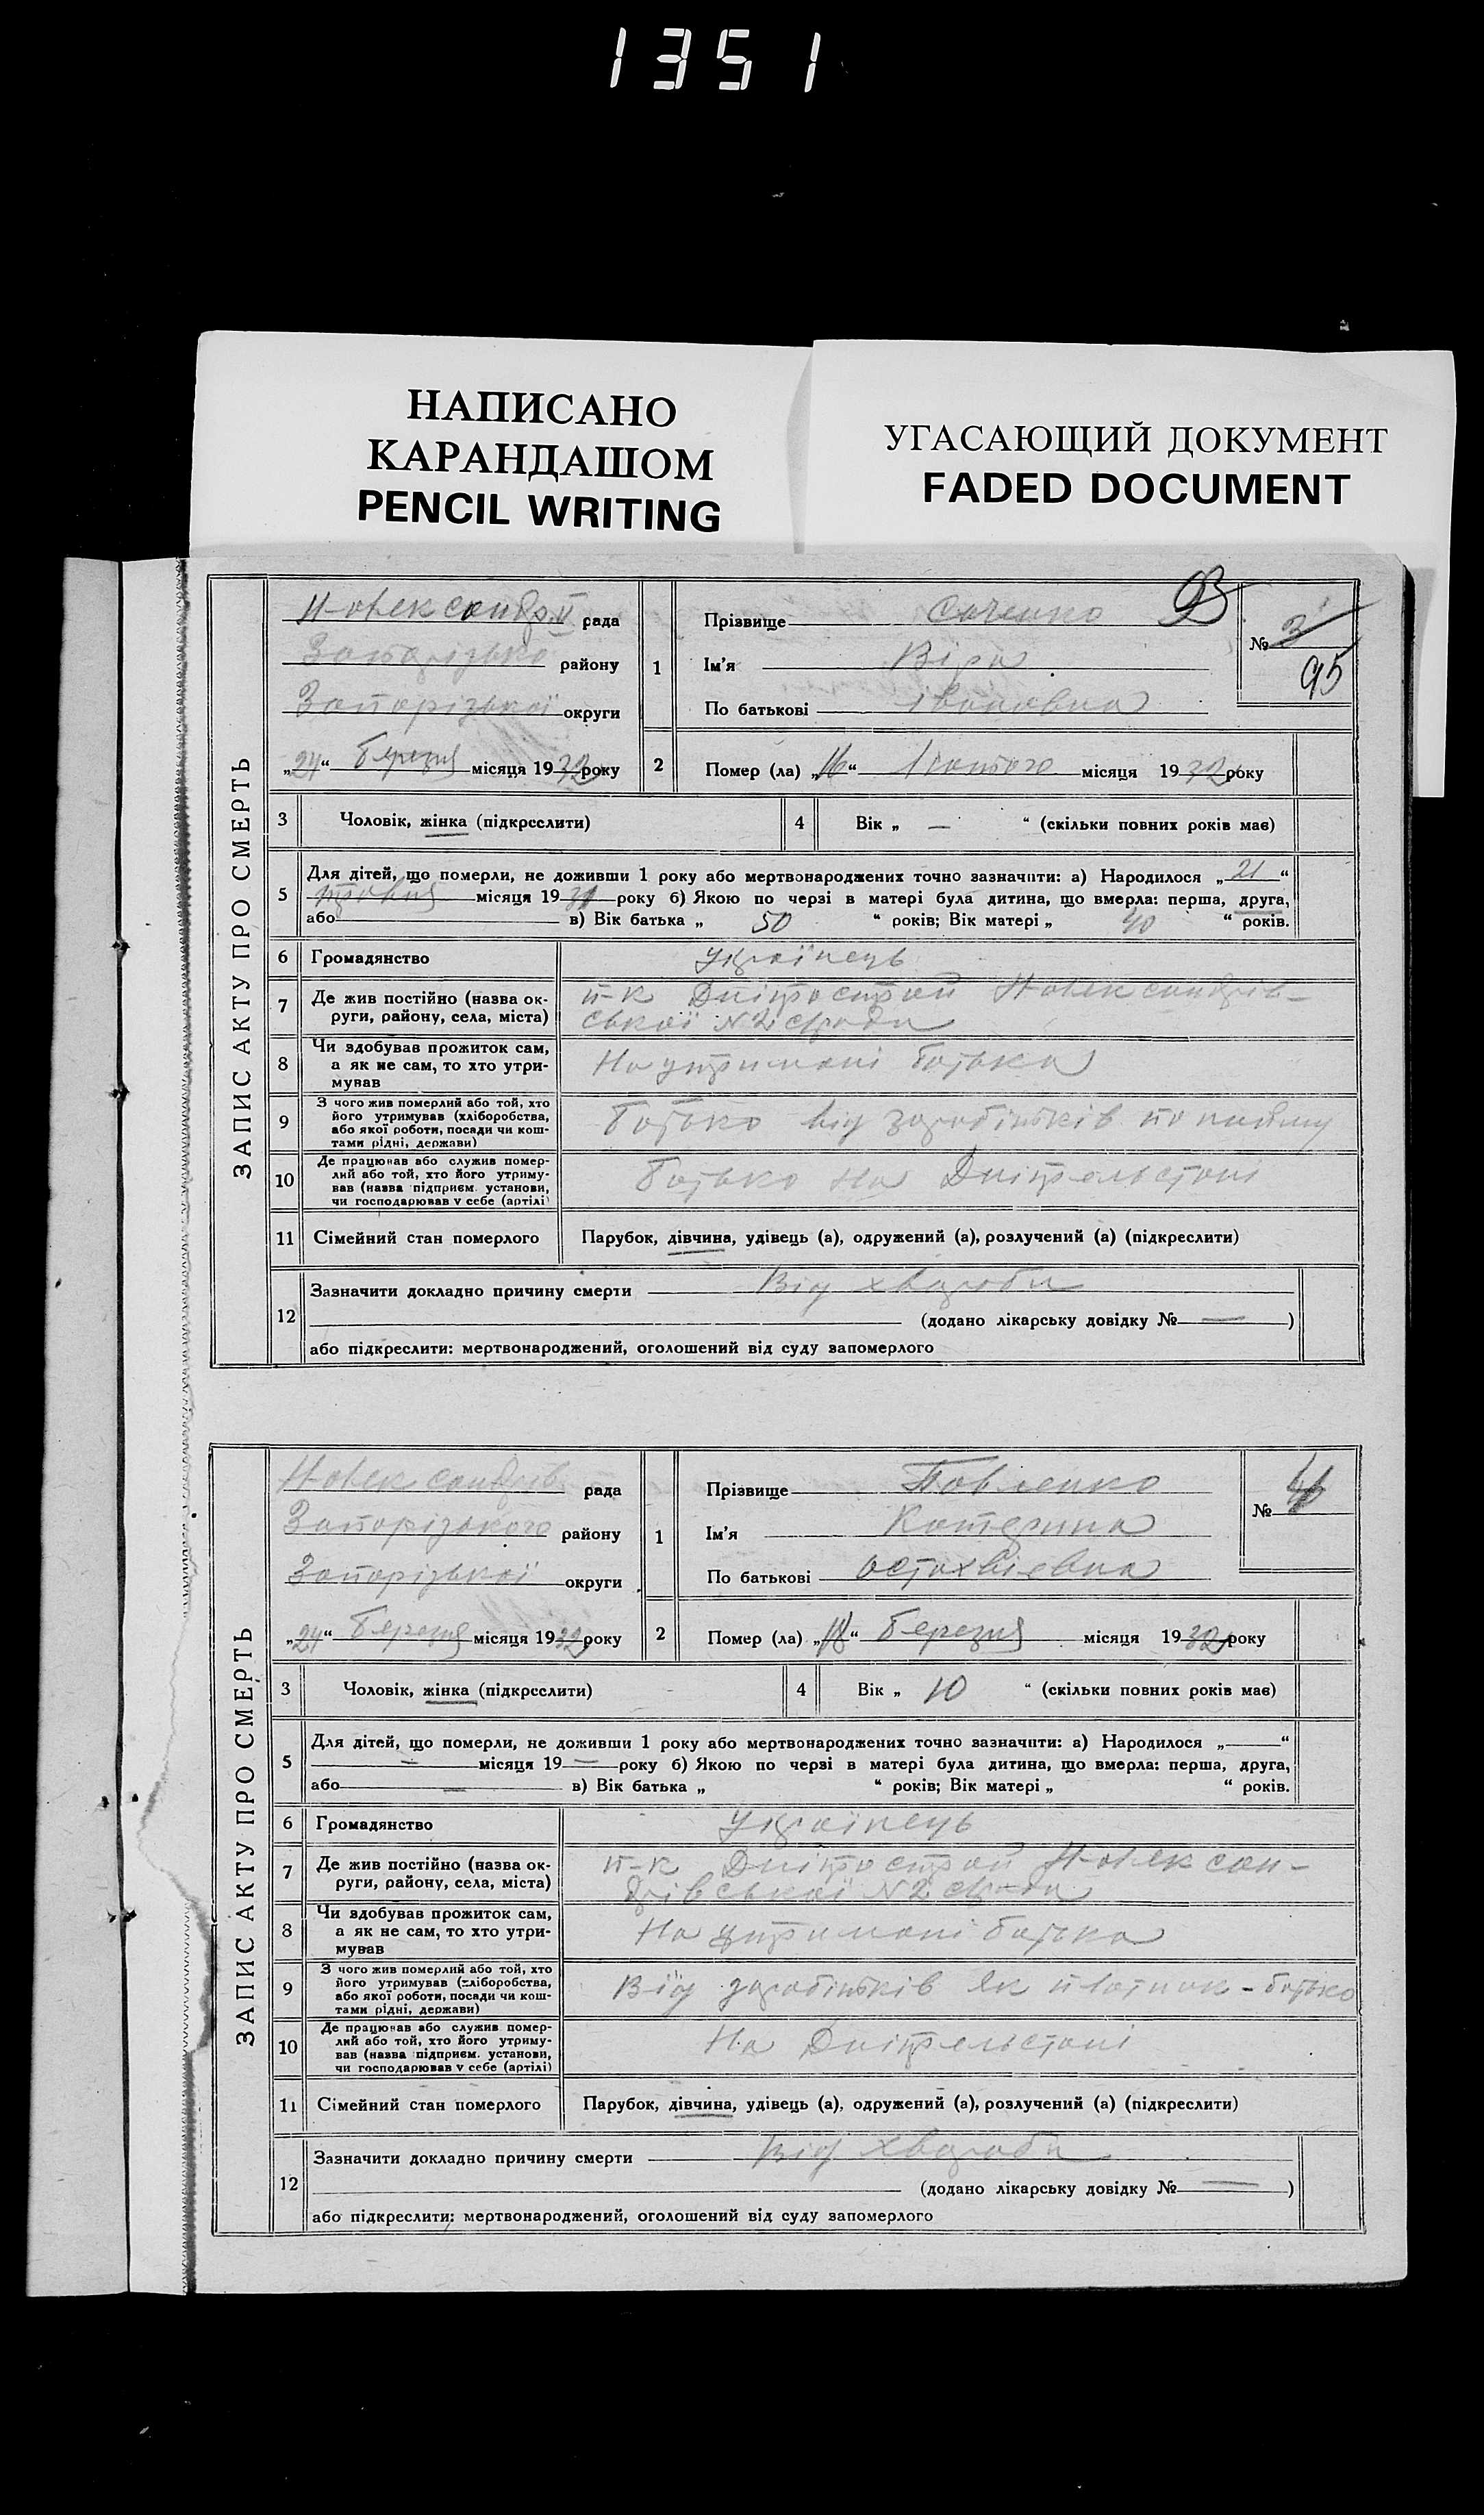 1351
НАПИСАНО
КАРАНДАШОМ
PENCIL WRITING
УГАСАЮЩИЙ ДОКУМЕНТ
FADED DOCUMENT
ЗАПИС АКТУ ПРО СМЕРТЬ
рада
Запорізько району
Запорізької округи
„24“ березня місяця 1932 року
1
Прізвище
Ім'я Віра
По батькові Івановна
№ 3
95
2
Помер (ла) „16“ Лютого місяця 1932 року
3 Чоловік, жінка (підкреслити)
4 Вік „ — “ (скільки повних років має)
5 Для дітей, що померли, не доживши 1 року або мертвонароджених точно зазначити: а) Народилося „21“
травня місяця 1931 року б) Якою по черзі в матері була дитина, що вмерла: перша, друга,
або в) Вік батька „ 50 “ років; Вік матері „ 40 “ років.
6 Громадянство Українець
7 Де жив постійно (назва ок-
руги, району, села, міста)
п-к Дніпрострой
ської №2 с/ради
8 Чи здобував прожиток сам,
а як не сам, то хто утри-
мував
На утримані батька
9 З чого жив померлий або той, хто
його утримував (хліборобства,
або якої роботи, посади чи кош-
тами рідні, держави)
Батько від заробітків по найму
10 Де працював або служив помер-
лий або той, хто його утриму-
вав (назва підприєм. установи,
чи господарював у себе (артілі)
Батько на Дніпрельстані
11 Сімейний стан померлого Парубок, дівчина, удівець (а), одружений (а), розлучений (а) (підкреслити)
12 Зазначити докладно причину смерти Від хвороби
(додано лікарську довідку № — )
або підкреслити: мертвонароджений, оголошений від суду запомерлого
ЗАПИС АКТУ ПРО СМЕРТЬ
рада
Запорізького району
Запорізької округи
„24“ березня місяця 1932 року
1
Прізвище Павленко
Ім'я Катерина
По батькові Остахвіевна
№ 4
2
Помер (ла) „18“ березня місяця 1932 року
3 Чоловік, жінка (підкреслити)
4 Вік „ 10 “ (скільки повних років має)
5 Для дітей, що померли, не доживши 1 року або мертвонароджених точно зазначити: а) Народилося „ — “
— місяця 19 — року б) Якою по черзі в матері була дитина, що вмерла: перша, друга,
або — в) Вік батька „ “ років; Вік матері „ “ років.
6 Громадянство Українець
7 Де жив постійно (назва ок-
руги, району, села, міста)
п-к Дніпрострой
дрівської №2 с/ради
8 Чи здобував прожиток сам,
а як не сам, то хто утри-
мував
На утримані батька
9 З чого жив померлий або той, хто
його утримував (хліборобства,
або якої роботи, посади чи кош-
тами рідні, держави)
Від заробітків як плотник - батько
10 Де працював або служив помер-
лий або той, хто його утриму-
вав (назва підприєм. установи,
чи господарював у себе (артілі)
На Дніпрельстані
11 Сімейний стан померлого Парубок, дівчина, удівець (а), одружений (а), розлучений (а) (підкреслити)
12 Зазначити докладно причину смерти Від хвороби
(додано лікарську довідку № — )
або підкреслити: мертвонароджений, оголошений від суду запомерлого